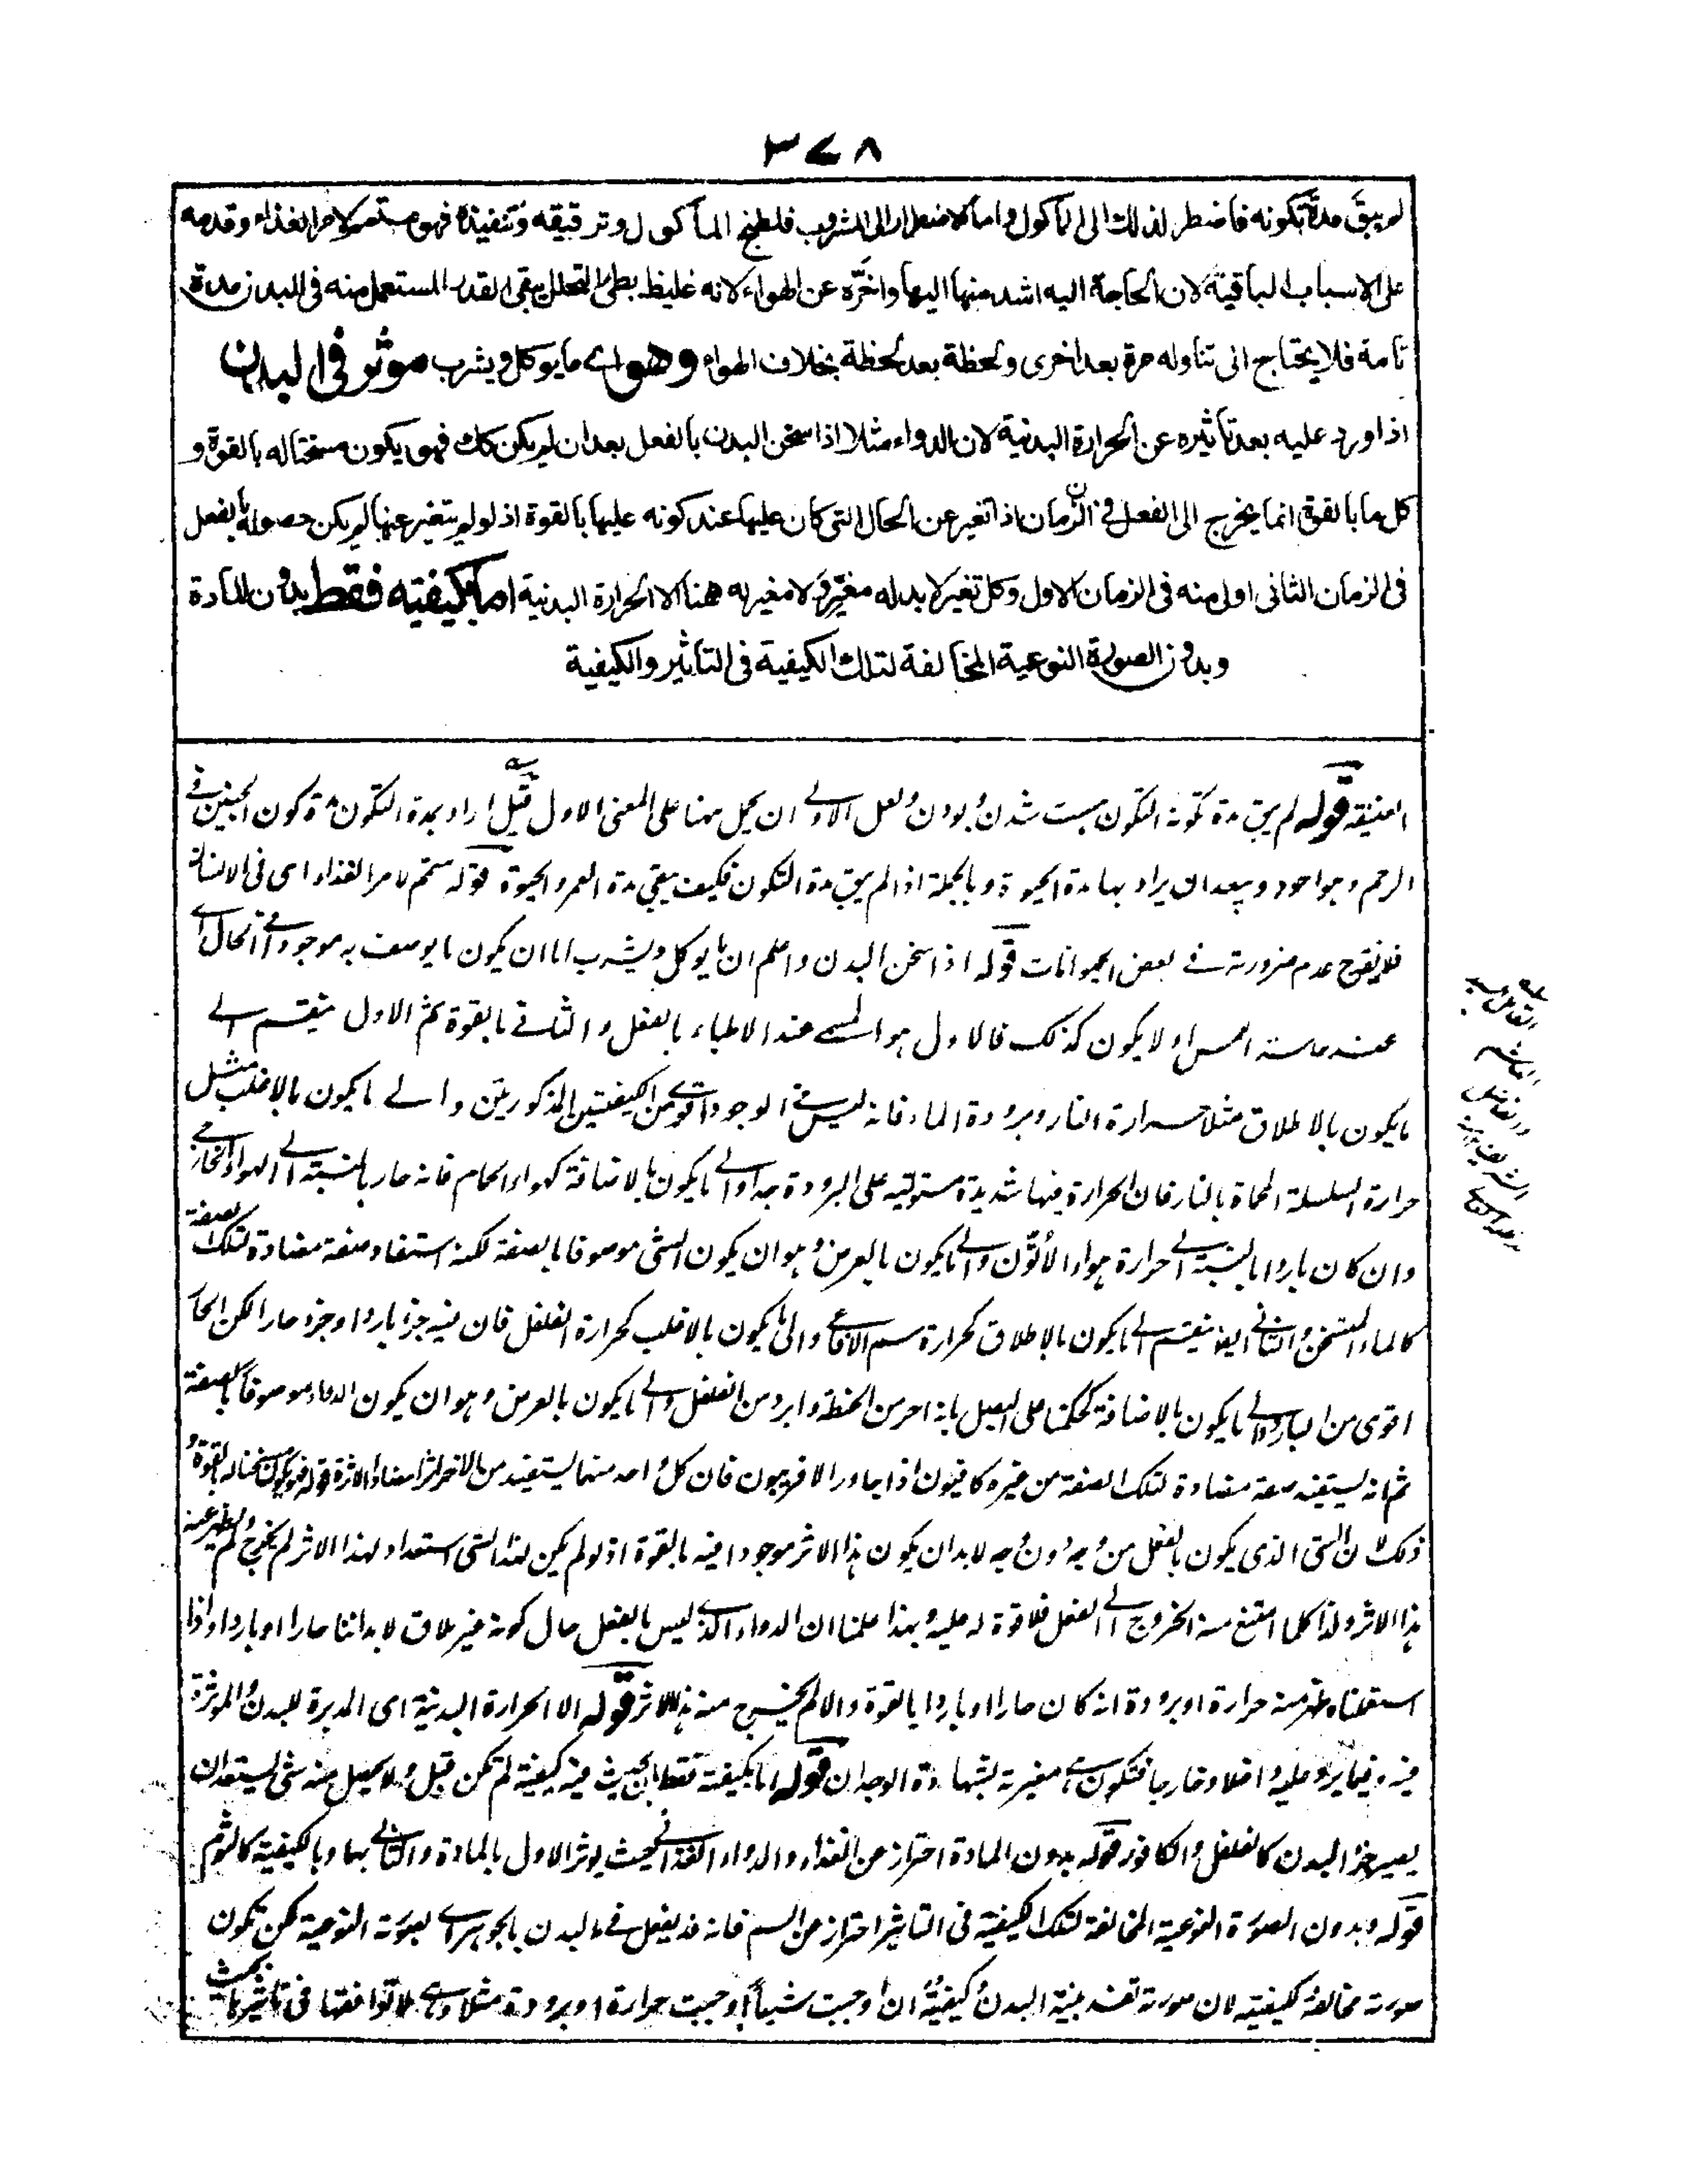 ٣٧٨
لم يبق مدة تكونه فاضطر لذلك الى المأكول واما الاضطرار الى المشروب فلطبخ المأكول وترقيقه وتنفيذه فهو متمم لامر الغذاء وقدمه
على الاسباب الباقية لان الحاجة اليه اشد منها اليها واخّره عن الهواء لانه غليظ بطئ التحلل يبقى القدر المستعمل منه فى البدن مدة
تامة فلا يحتاج الى تناوله مرة بعد اخرى ولحظة بعد لحظة بخلاف الهواء وهو اے ما يوكل ويشرب موثر فى البدن
اذا ورد عليه بعد تأثيره عن الحرارة البدنية لان الدواء مثلا اذا سخن البدن بالفعل بعد ان لم يكن كك فهو يكون مسخنا له بالقوة و
كل ما بالقوة انما يخرج الى الفعل فى الزمان اذا تغير عن الحال التى كان عليها عند كونه عليها بالقوة اذ لو لم يتغير عنها لم يكن حصوله بالفعل
فى الزمان الثانى اولى منه فى الزمان الاول وكل تغير لا بد له مغيّر ولا مغير له ههنا الا الحرارة البدنية اما بكيفيته فقط بدون المادة
وبدون الصورة النوعية المخالفة لتلك الكيفية فى التأثير والكيفية
العنيفة قوله لم يبق مدة تكونه التكون هست شدن وبودن ولعل الاولے ان يحمل ههنا على المعنى الاول قيل اراد بمدة التكون مدة كون الجنين فے
الرحم وهو اجود ويبعد ان يراد بها مدة الحيوة وبالجملة اذا لم يبق مدة التكون فكيف يبقى مدة العمر والحيوة قوله متمم لامر الغذاء اى فى الانسان
فلا يقدح عدم ضرورته فے بعض الحيوانات قوله اذا سخن البدن واعلم ان ما يوكل ويشرب اما ان يكون ما يوصف به موجودا فے الحال اے
عند ماسته الحس او لا يكون كذلك فالاول هو المسمے عند الاطباء بالفعل والثانے بالقوة ثم الاول ينقسم الے
ما يكون بالاطلاق مثلا حرارة النار وبرودة الماء فانه ليس فے الوجود اقوے من الكيفيتين المذكورتين والے ما يكون بالاغلب مثل
حرارة السلسلة المحماة بالنار فان الحرارة فيها شديدة مستولية على البرودة جدا والے ما يكون بالاضافة كهواء الحمام فانه حار بالنسبة الے الهواء الخارجے
وان كان باردا بالنسبة الے حرارة هواء الأتون والے ما يكون بالعرض وهو ان يكون الشئ موصوفا بصفة لكنه استفاد صفة مضادة لتلك الصفة
كالماء المتسخن والثانے ايضا ينقسم الے ما يكون بالاطلاق كحرارة سم الافاعے والى ما يكون بالاغلب كحرارة الفلفل فان فيه جزءا باردا وجزء حارا لكن الحار
اقوى من البارد والے ما يكون بالاضافة كحكمنا على البصل بانه احر من الحنطة وابرد من الفلفل والے ما يكون بالعرض وهو ان يكون الدواء موصوفا بالصفة
ثم انه يستفيد صفة مضادة لتلك الصفة من غيره كافيون اذا جاور الافربيون فان كل واحد منهما يستفيد من الاخر اثرا مضادا لاثره قوله فهو يكون مسخنا له بالقوة و
ذلك لان الشئ الذى يكون بالفعل من وجه دون وجه لا بد ان يكون هذا الاثر موجودا فيه بالقوة اذ لو لم يكن لهذا الشئ استعداد لهذا الاثر لم يخرج ولم يظهر عنه
هذا الاثر ولذا كلما امتنع منه الخروج الے الفعل فلا قوة له عليه وبهذا علمنا ان الدواء الذے ليس بالفعل حال كونه غير ملاق لابداننا حارا او باردا واذا
استعملناه ظهر منه حرارة او برودة انه كان حارا او باردا بالقوة والا لم يخرج منه هذا الاثر قوله الا الحرارة البدنية اى المدبرة للبدن والموثرة
فيه وفيما يرد عليه داخلا وخارجا فتكون هے مغيرته بشهادة الوجدان قوله اما بكيفيته فقط بان يحدث فيه كيفية لم تكن قبل ولا يحصل منه شئ يستعد لان
يصير جزء البدن كالفلفل والكافور قوله بدون المادة احتراز عن الغذاء والدواء الغذائے حيث يوثر الاول بالمادة والثانے بها وبالكيفية كالثوم
قوله وبدون الصورة النوعية المخالفة لتلك الكيفية فى التاثير احتراز عن السم فانه قد يفعل فے البدن بالجوهر اے بصورته النوعية لكن تكون
صورته مخالفة لكيفيته لان صورته تفسد بنية البدن وكيفيته ان اوجبت شيئا اوجبت حرارة او برودة مثلا وهے لا توافقها فى تاثيرها بحيث